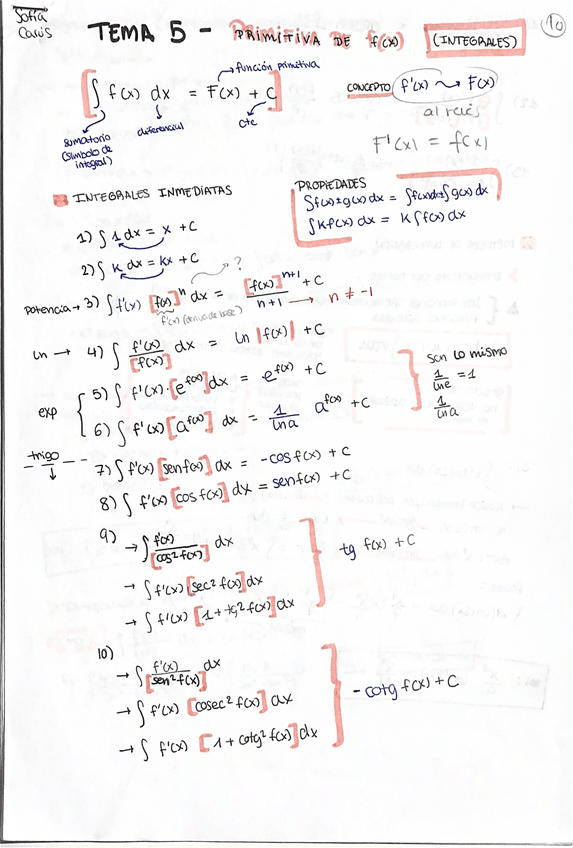 Sofía
Carús
10
TEMA 5 - PRIMITIVA DE f(x) (INTEGRALES)
función primitiva
∫ f(x) dx = F(x) + C
sumatorio
(símbolo de
integral)
diferencial
cte
CONCEPTO f'(x) ⇝ F(x)
al revés
F'(x) = f(x)
INTEGRALES INMEDIATAS
PROPIEDADES
∫f(x)±g(x) dx = ∫f(x)dx±∫g(x) dx
∫Kf(x) dx = K∫f(x) dx
1) ∫ 1 dx = x + C
2) ∫ K dx = Kx + C
?
Potencia → 3) ∫ f'(x) [f(x)]^n dx = [f(x)]^(n+1) / (n+1) + C → n ≠ -1
f'(x) (deriva de base)
Ln → 4) ∫ f'(x)/[f(x)] dx = Ln |f(x)| + C
exp
5) ∫ f'(x)·[e^f(x)] dx = e^f(x) + C
6) ∫ f'(x) [a^f(x)] dx = 1/Lna a^f(x) + C
son lo mismo
1/lne = 1
1/lna
trigo
7) ∫ f'(x) [senf(x)] dx = -cos f(x) + C
8) ∫ f'(x) [cos f(x)] dx = senf(x) + C
9)
→ ∫ f'(x)/[cos² f(x)] dx
→ ∫ f'(x) [sec² f(x)] dx
→ ∫ f'(x) [1 + tg² f(x)] dx
tg f(x) + C
10)
→ ∫ f'(x)/[sen² f(x)] dx
→ ∫ f'(x) [cosec² f(x)] dx
→ ∫ f'(x) [1 + cotg² f(x)] dx
- cotg f(x) + C